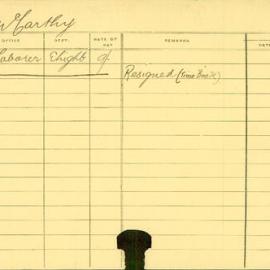 McCarthy
OFFICE DEPT. RATE OF PAY REMARKS DATE
Laborer
Resigned (Time Book)